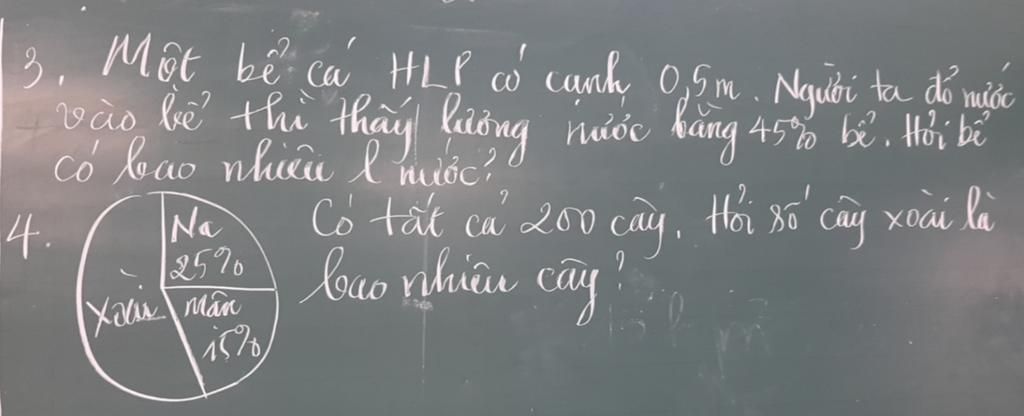 3, Một bể cá HLP có cạnh 0,5m. Người ta đổ nước
vào bể thì thấy lượng nước bằng 45% bể. Hỏi bể
có bao nhiêu l nước?
4.
Na
25%
Xoài
Mận
15%
Có tất cả 200 cây. Hỏi số cây xoài là
bao nhiêu cây?